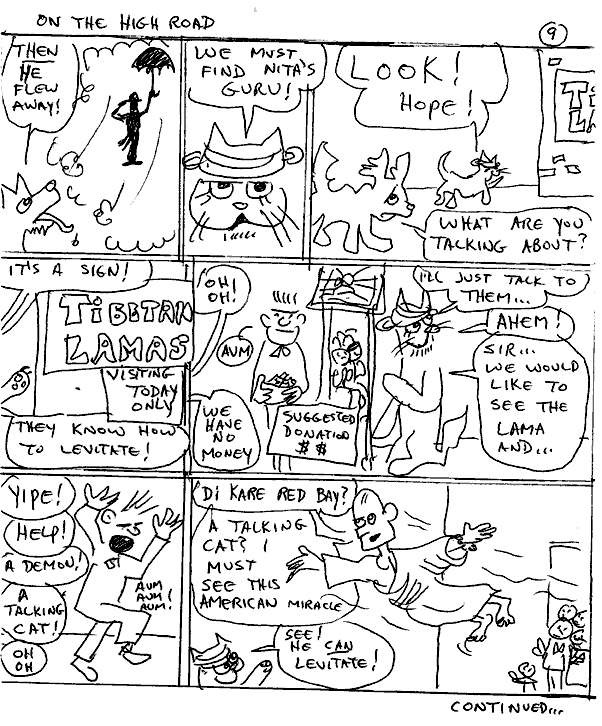 ON THE HIGH ROAD
9
THEN
HE
FLEW
AWAY!
WE MUST
FIND NITA'S
GURU!
LOOK!
HOPE!
TI
LA
WHAT ARE YOU
TALKING ABOUT?
IT'S A SIGN!
TIBETAN
LAMAS
VISITING
TODAY
ONLY
THEY KNOW HOW
TO LEVITATE!
OH!
OH!
AUM
WE
HAVE
NO
MONEY
SUGGESTED
DONATION
$ $
I'LL JUST TALK TO
THEM...
AHEM!
SIR...
WE WOULD
LIKE TO
SEE THE
LAMA
AND...
YIPE!
HELP!
A DEMON!
A
TALKING
CAT!
OH
OH
AUM
AUM!
AUM!
DI KARE RED BAY?
A TALKING
CAT? I
MUST
SEE THIS
AMERICAN MIRACLE
SEE!
HE CAN
LEVITATE!
CONTINUED...